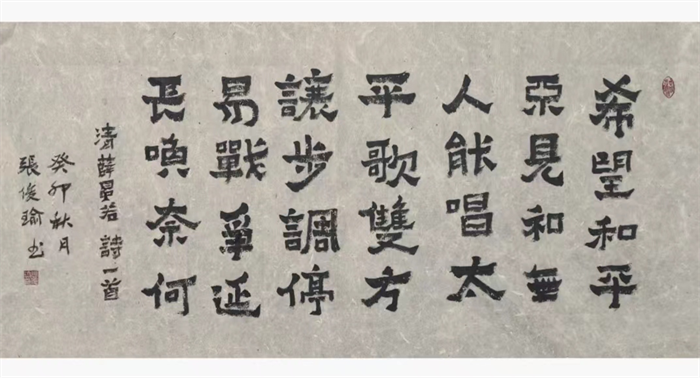 希望和平
亞見和無
人能唱太
平歌雙方
讓步調停
易戰爭延
長喚奈何
清薛若詩一首
癸卯秋月
張俊瑜书